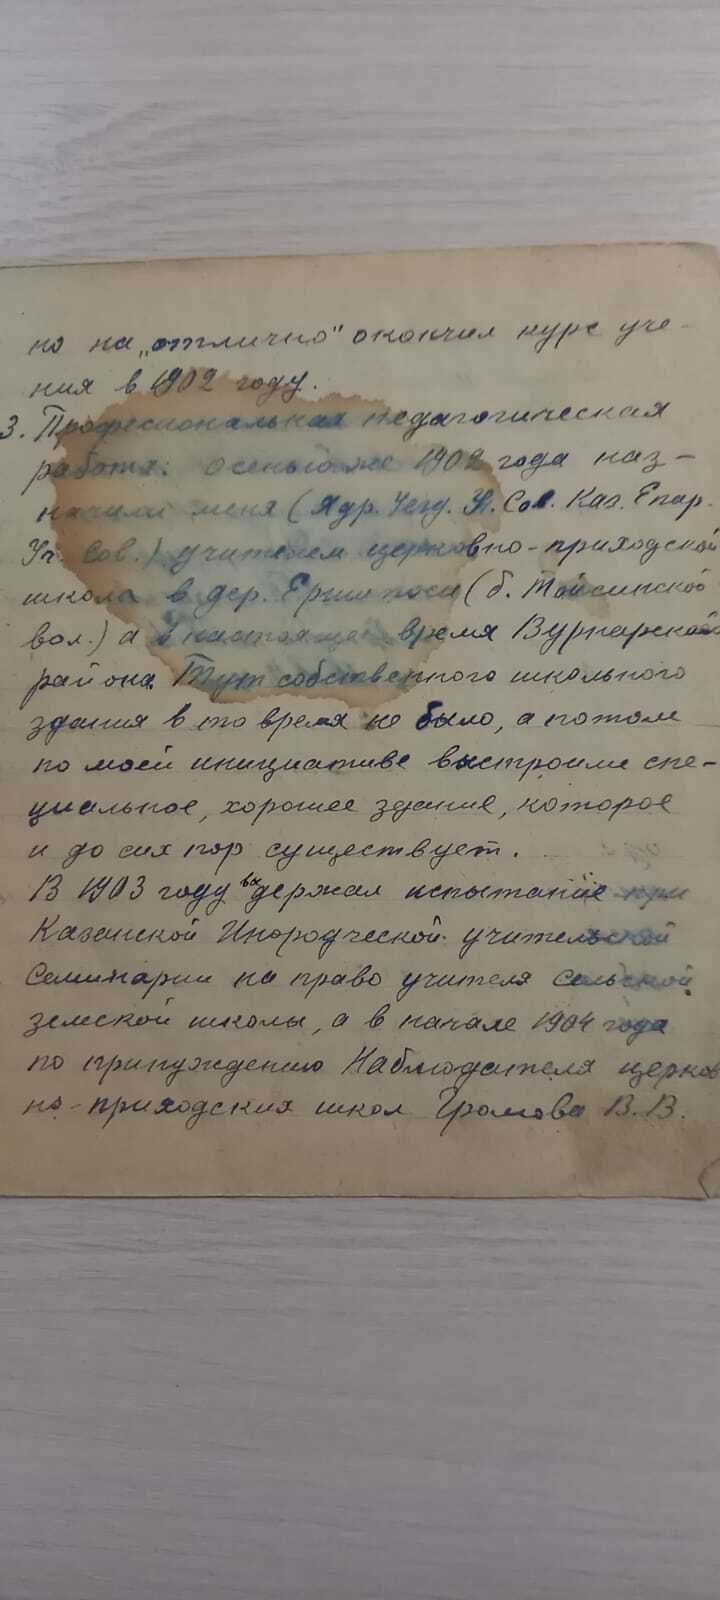 но на „отлично" окончил курс уче-
ния в 1902 году.
3. Професиональная педагогическая
работа: осенью же 1902 года наз-
начили меня (Ядр. Уезд. Уч. Сов. Каз. Епар.
Уч. Сов.) учителем церковно-приходской
школа в дер. Ершипоси (б. Тойсинской
вол.) а в настоящее время Вурнарской
района. Тут собственного школьного
здания в то время не было, а потом
по моей инициативе выстроили спе-
циальное, хорошее здание, которое
и до сих пор существует.
В 1903 году выдержал испытание при
Казанской Инородческой учительской
Семинарии на право учителя сельской
земской школы, а в начале 1904 года
по принуждению Наблюдателя церков
но-приходских школ Громова В.В.